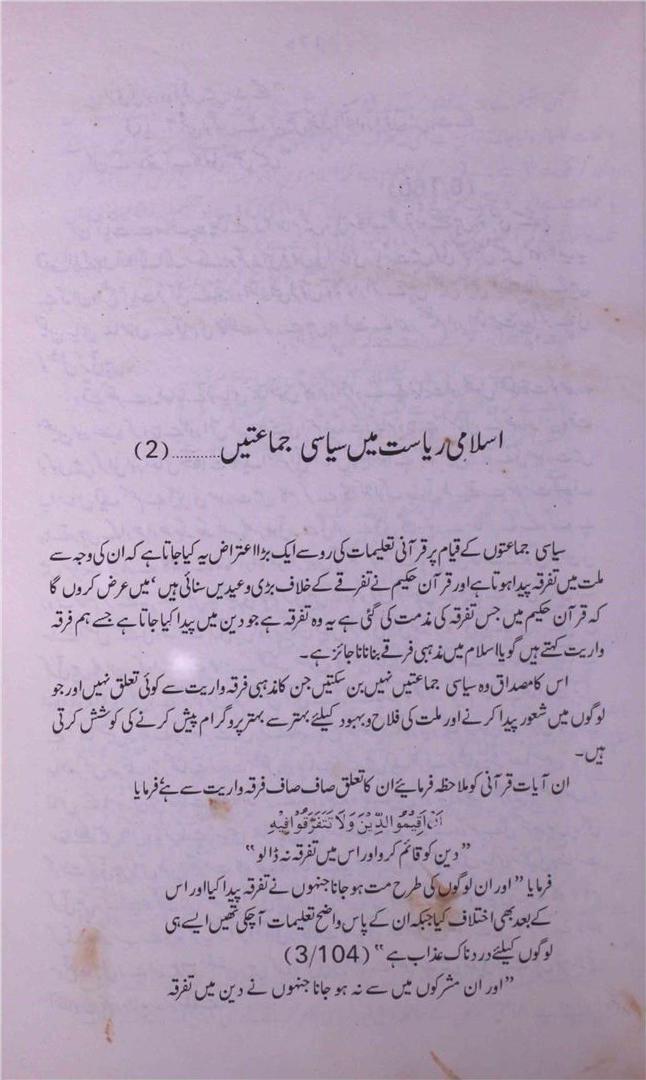 اسلامی ریاست میں سیاسی جماعتیں..........(2)
سیاسی جماعتوں کے قیام پر قرآنی تعلیمات کی روسے ایک بڑا اعتراض یہ کیا جاتا ہے کہ ان کی وجہ سے
ملت میں تفرقہ پیدا ہوتا ہے اور قرآن حکیم نے تفرقے کے خلاف بڑی وعیدیں سنائی ہیں ‘میں عرض کروں گا
کہ قرآن حکیم میں جس تفرقہ کی مذمت کی گئی ہے یہ وہ تفرقہ ہے جو دین میں پیدا کیا جاتا ہے جسے ہم فرقہ
واریت کہتے ہیں گویا اسلام میں مذہبی فرقے بنانا ناجائز ہے۔
اس کا مصداق وہ سیاسی جماعتیں نہیں بن سکتیں جن کا مذہبی فرقہ واریت سے کوئی تعلق نہیں اور جو
لوگوں میں شعور پیدا کرنے اور ملت کی فلاح و بہبود کیلئے بہتر سے بہتر پروگرام پیش کرنے کی کوشش کرتی
ہیں۔
ان آیات قرآنی کو ملاحظہ فرمایئے ان کا تعلق صاف صاف فرقہ واریت سے ہے فرمایا
اَنْ اَقِيْمُوا الدِّيْنَ وَلَا تَتَفَرَّقُوْا فِيْهِ
”دین کو قائم کرو اور اس میں تفرقہ نہ ڈالو“
فرمایا ”اور ان لوگوں کی طرح مت ہو جانا جنہوں نے تفرقہ پیدا کیا اور اس
کے بعد بھی اختلاف کیا جبکہ ان کے پاس واضح تعلیمات آچکی تھیں ایسے ہی
لوگوں کیلئے دردناک عذاب ہے“ (3/104)
”اور ان مشرکوں میں سے نہ ہو جانا جنہوں نے دین میں تفرقہ